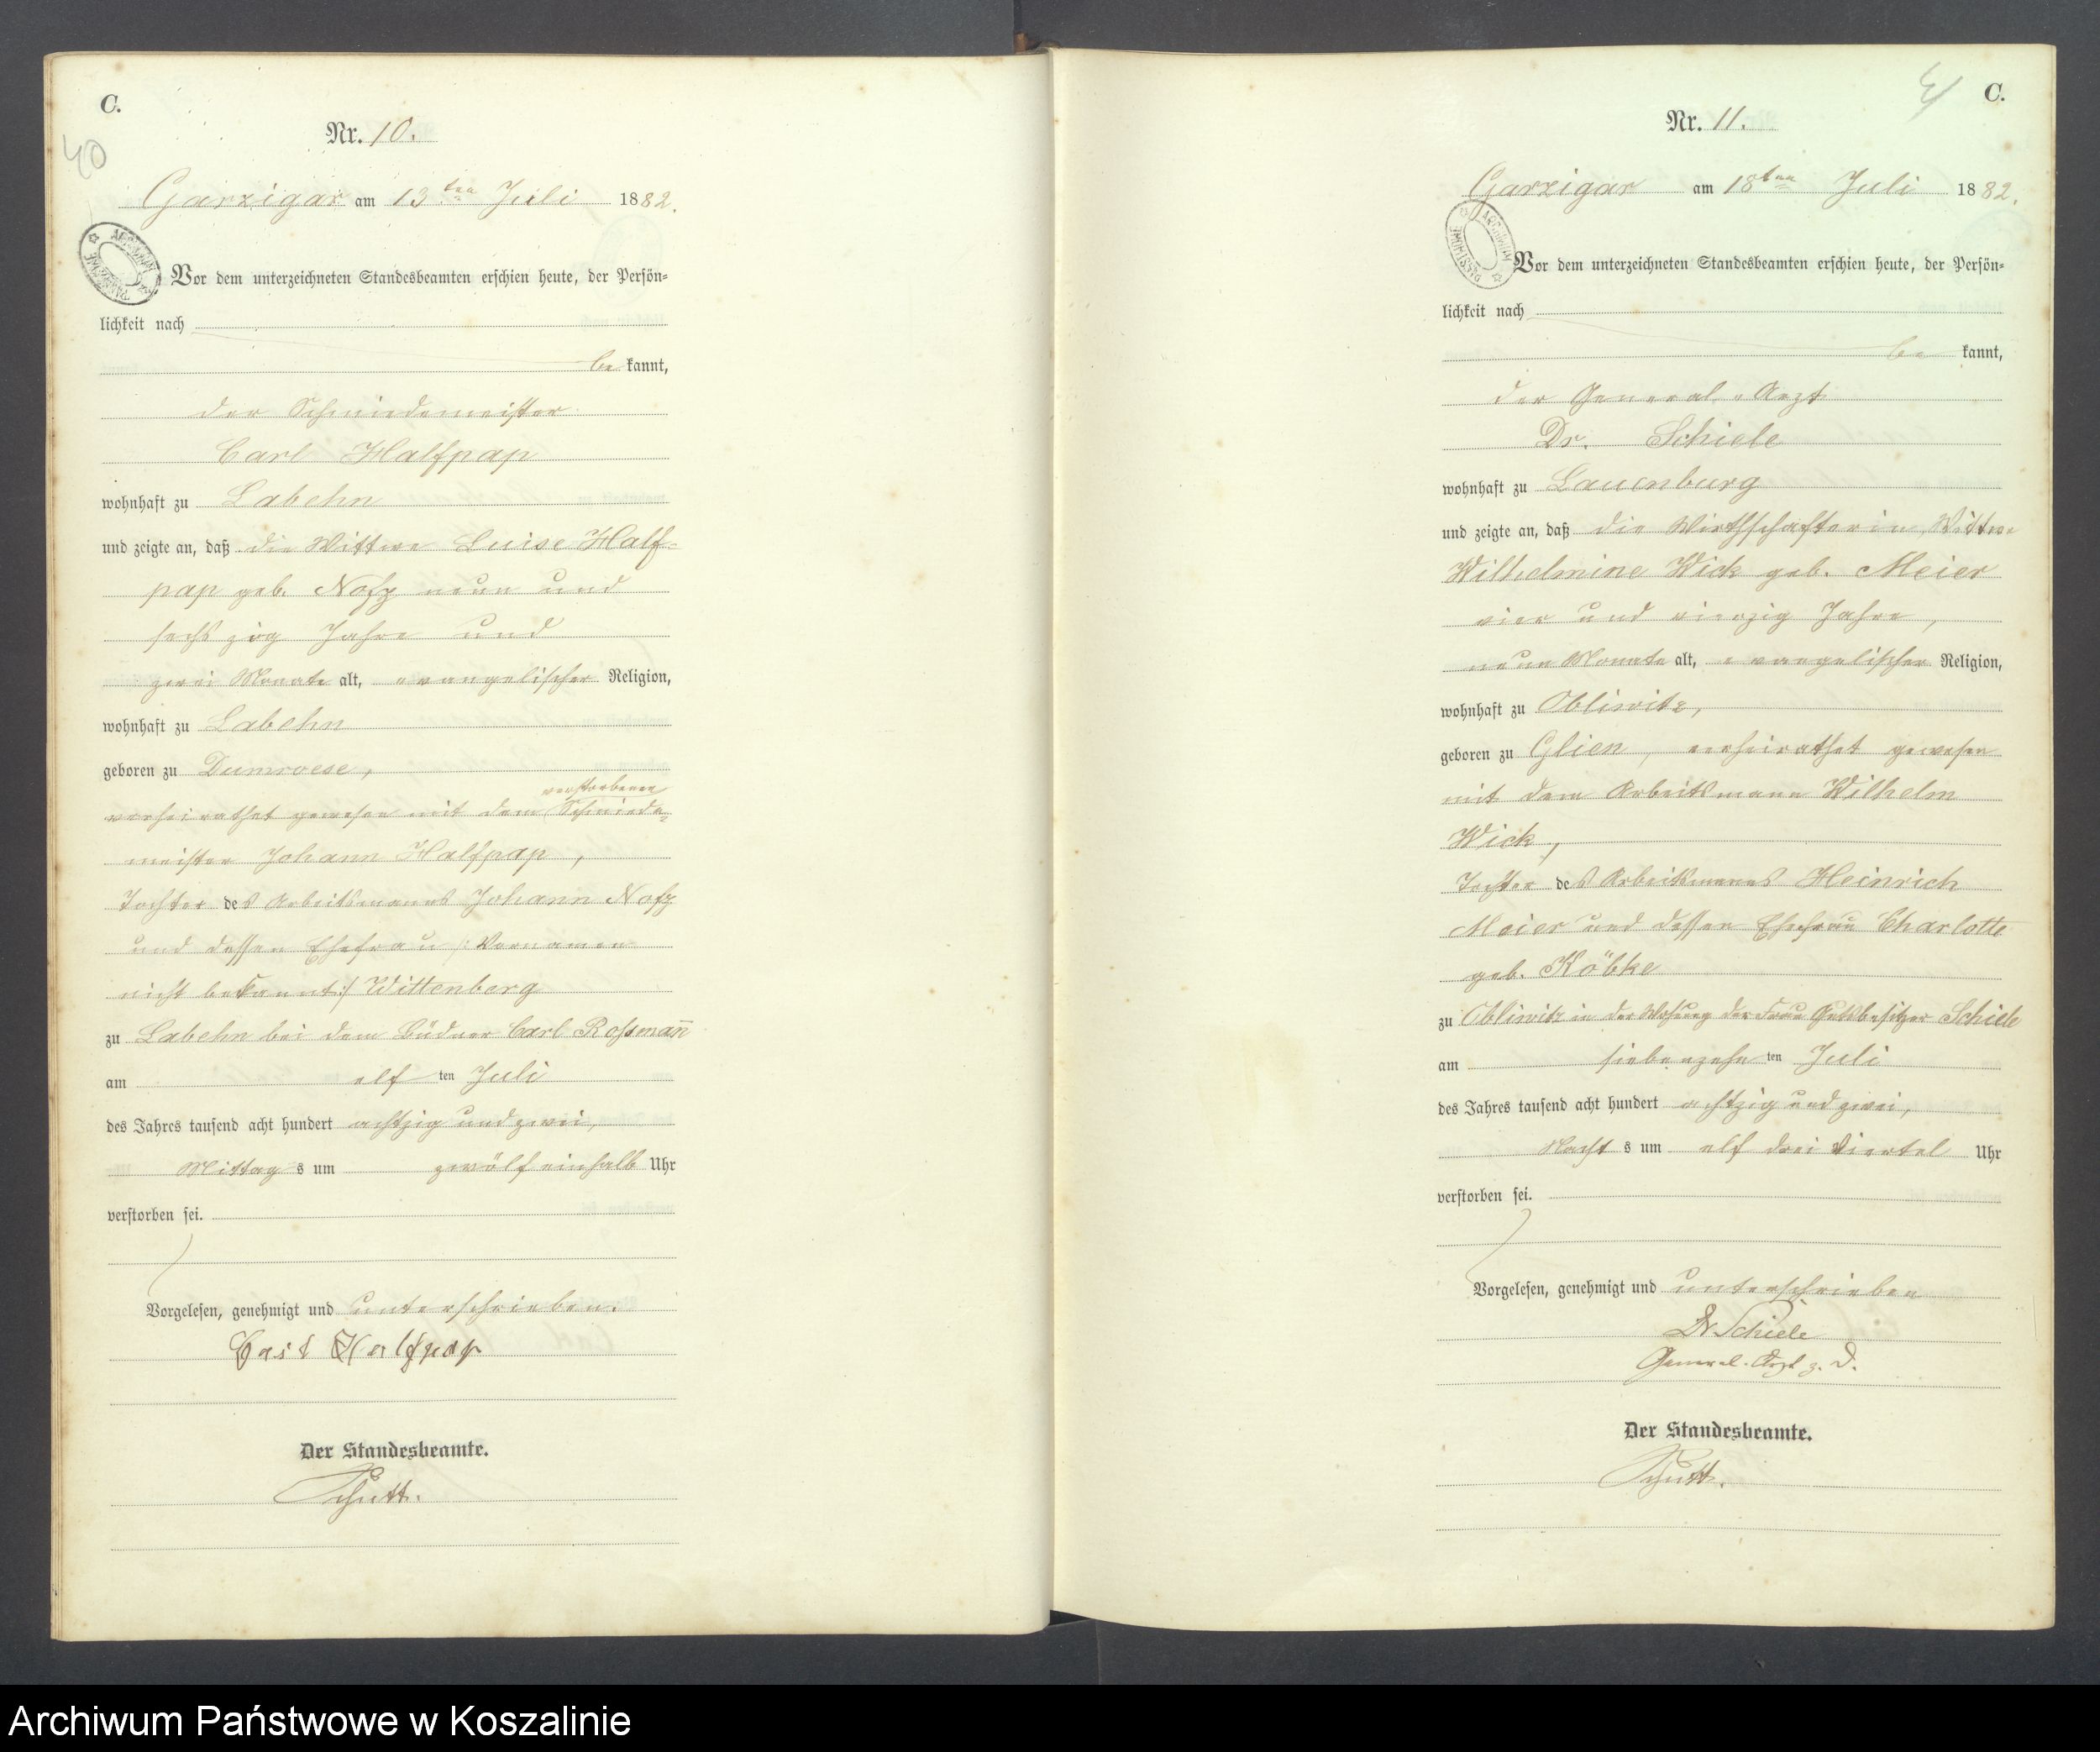 C.
40
Nr. 10.
Garzigar am 13ten Juli 1882.
Vor dem unterzeichneten Standesbeamten erschien heute, der Persön-
lichkeit nach
bekannt,
der Schmiedemeister
Carl Halfpap
wohnhaft zu Labehn
und zeigte an, daß die Wittwe Luise Half-
pap geb. Nofz neun und
sechszig Jahre und
zwei Monate alt, evangelischer Religion,
wohnhaft zu Labehn
geboren zu Dumroese,
verstorbenen
verheirathet gewesen mit dem Schmiede-
meister Johann Halfpap,
Tochter des Arbeitsmanns Johann Nofz
und dessen Ehefrau /: Vornamen
nicht bekannt :/ Wittenberg
zu Labehn bei dem Büdner Carl Roßmann
am elf ten Juli
des Jahres tausend acht hundert achtzig und zwei,
Mittags um zwölf einhalb Uhr
verstorben sei.
Vorgelesen, genehmigt und unterschrieben.
Carl Halfpap
Der Standesbeamte.
Schutt.
41
C.
Nr. 11.
Garzigar am 18ten Juli 1882.
Vor dem unterzeichneten Standesbeamten erschien heute, der Persön-
lichkeit nach
be kannt,
der General-Arzt
Dr. Schiele
wohnhaft zu Lauenburg
und zeigte an, daß die Wirthschafterin, Wittwe
Wilhelmine Wick geb. Meier
vier und vierzig Jahre,
neun Monate alt, evangelischer Religion,
wohnhaft zu Obliwitz,
geboren zu Glien, verheirathet gewesen
mit dem Arbeitsmann Wilhelm
Wick,
Tochter des Arbeitsmanns Heinrich
Meier und dessen Ehefrau Charlotte
geb. Köbke
zu Obliwitz in der Wohnung der Frau Gutsbesitzer Schiele
am siebenzehn ten Juli
des Jahres tausend acht hundert achtzig und zwei,
Nachts um elf drei Viertel Uhr
verstorben sei.
Vorgelesen, genehmigt und unterschrieben
Dr Schiele
General-Arzt z. D.
Der Standesbeamte.
Schutt.
Archiwum Państwowe w Koszalinie